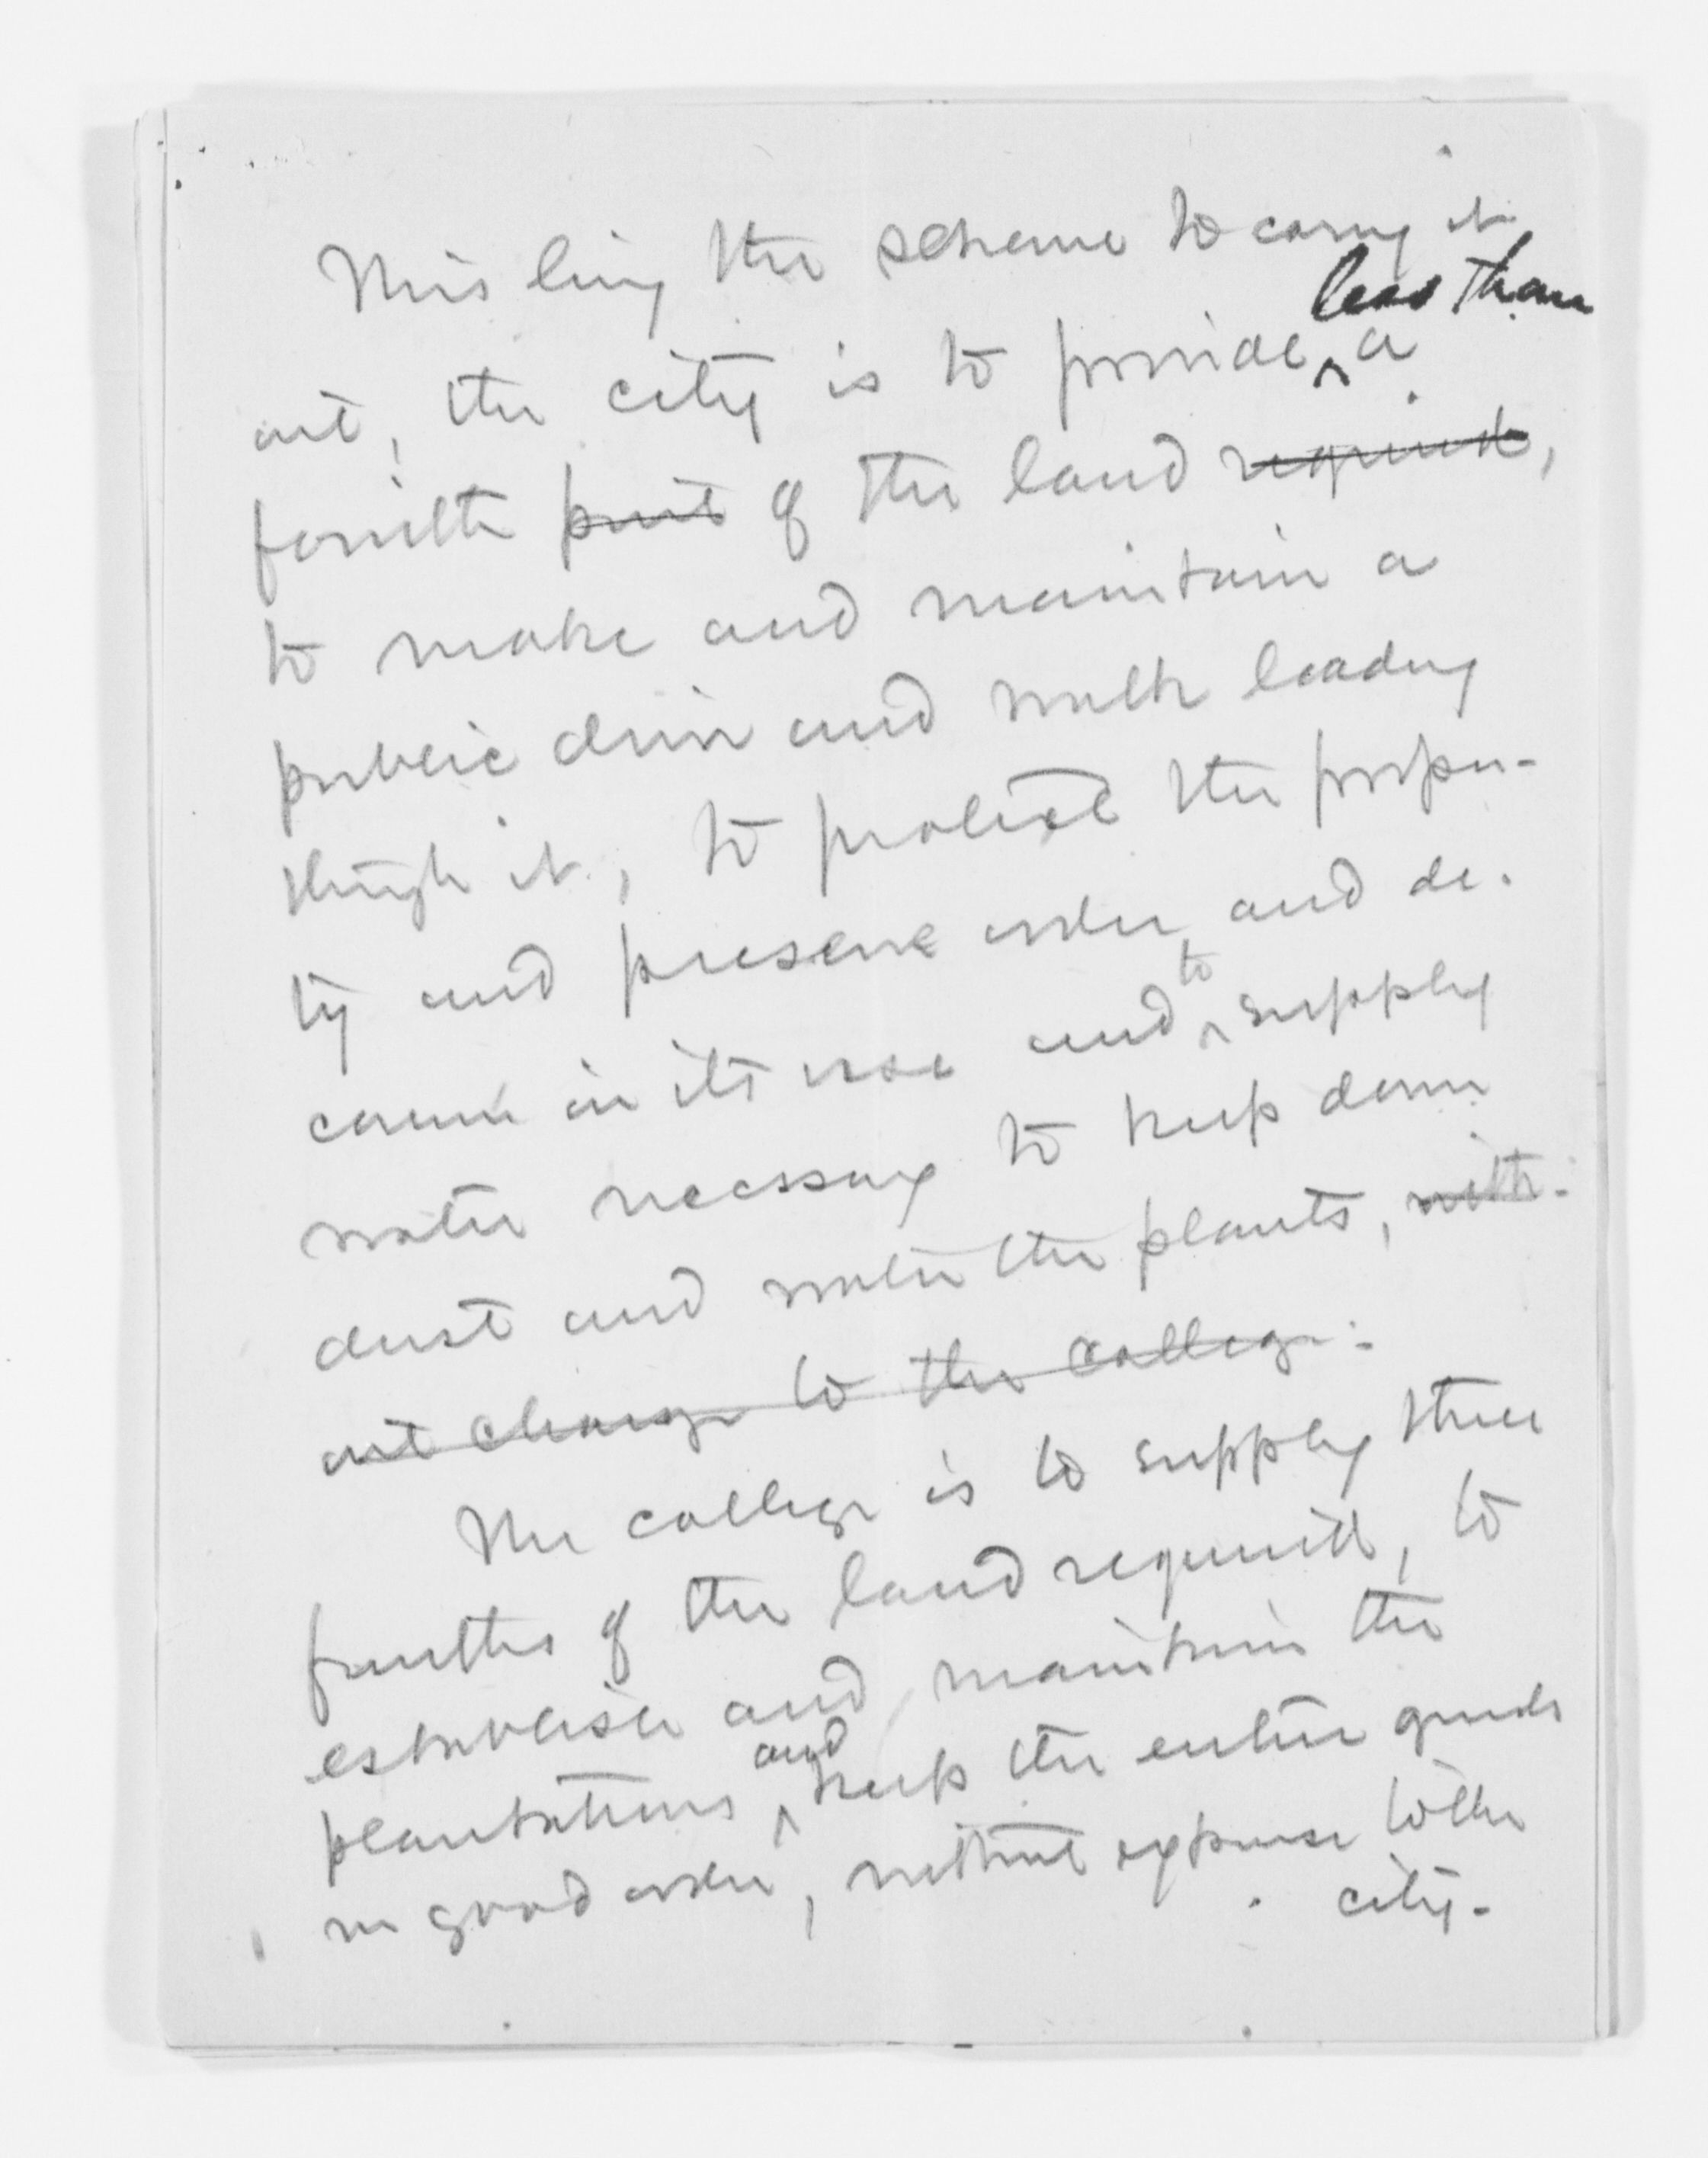 This being the scheme to carry it
out, the city is to provide less than a
fourth part of the land required,
to make and maintain a
public drive and walk leading
through it, to protect the proper-
ty and preserve order and de-
corum in its use and to supply
water necessary to keep down
dust and water the plants, with-
out charge to the college.
The college is to supply three
fourths of the land required, to
establish and maintain the
plantations and keep the entire grounds
in good order, without expense to the
city.